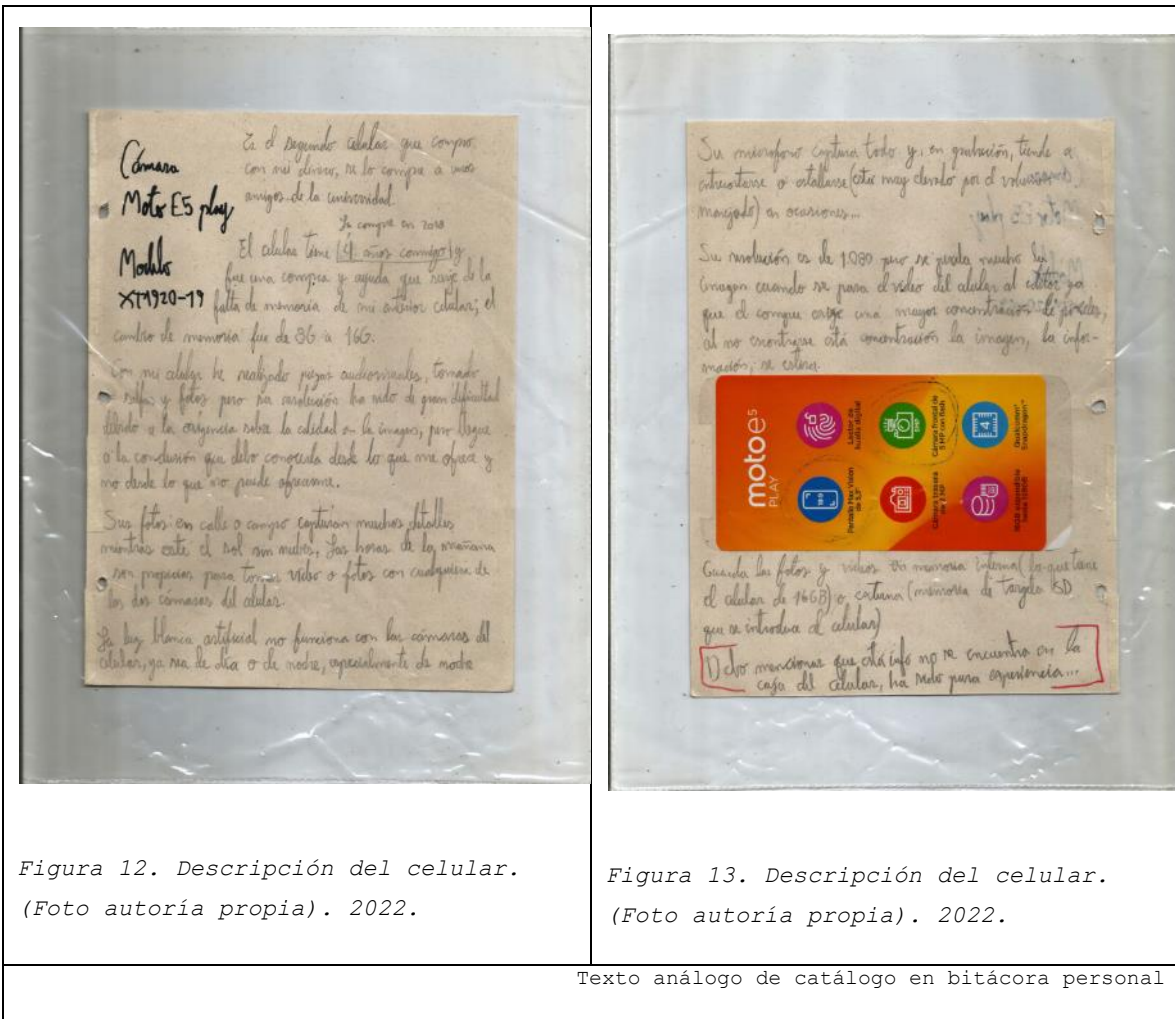 Cámara
Moto E5 play
Modelo
XT1920-19
Es el segundo celular que compro
con mi dinero, se lo compre a unos
amigos de la universidad.
Lo compre en 2018
El celular tiene (4 años conmigo) y
fue una compra y ayuda que surje de la
falta de memoria de mi anterior celular; el
cambio de memoria fue de 8G a 16G.
Con mi celular he realizado piezas audiovisuales, tomado
selfys y fotos pero su resolución ha sido de gran dificultad
debido a la exigencia sobre la calidad en la imagen, pero llegue
a la conclusión que debo conocerla desde lo que me ofrece y
no desde lo que no puede ofrecerme.
Sus fotos en calle o campo capturan muchos detalles
mientras este el sol sin nubes, las horas de la mañana
son propicias para tomar video o fotos con cualquiera de
las dos cámaras del celular.
La luz blanca artificial no funciona con las cámaras del
celular, ya sea de día o de noche, especialmente de noche
Figura 12. Descripción del celular.
(Foto autoría propia). 2022.
Su microfono captura todo y, en grabación, tiende a
entrecortarse o estallarse (estar muy elevado por el volumen
manejado) en ocasiones...
Su resolución es de 1.080 pero se pixela mucho la
imagen cuando se pasa el video del celular al editor ya
que el compu exige una mayor concentración de pixeles,
al no encontrarse está concentración la imagen, la infor-
mación, se estira.
motoe5
PLAY
Pantalla Max Vision
de 5,3"
Lector de
huella digital
Cámara trasera
de 8 MP
Cámara frontal de
5 MP con flash
16GB expandible
hasta 128GB
Qualcomm®
Snapdragon™
Guarda las fotos y videos en memoria interna (lo que tiene
el celular de 16GB) o externa (memoria de targeta SD
que se introduce al celular)
Debo mencionar que está info no se encuentra en la
caja del celular, ha sido pura experiencia...
Figura 13. Descripción del celular.
(Foto autoría propia). 2022.
Texto análogo de catálogo en bitácora personal